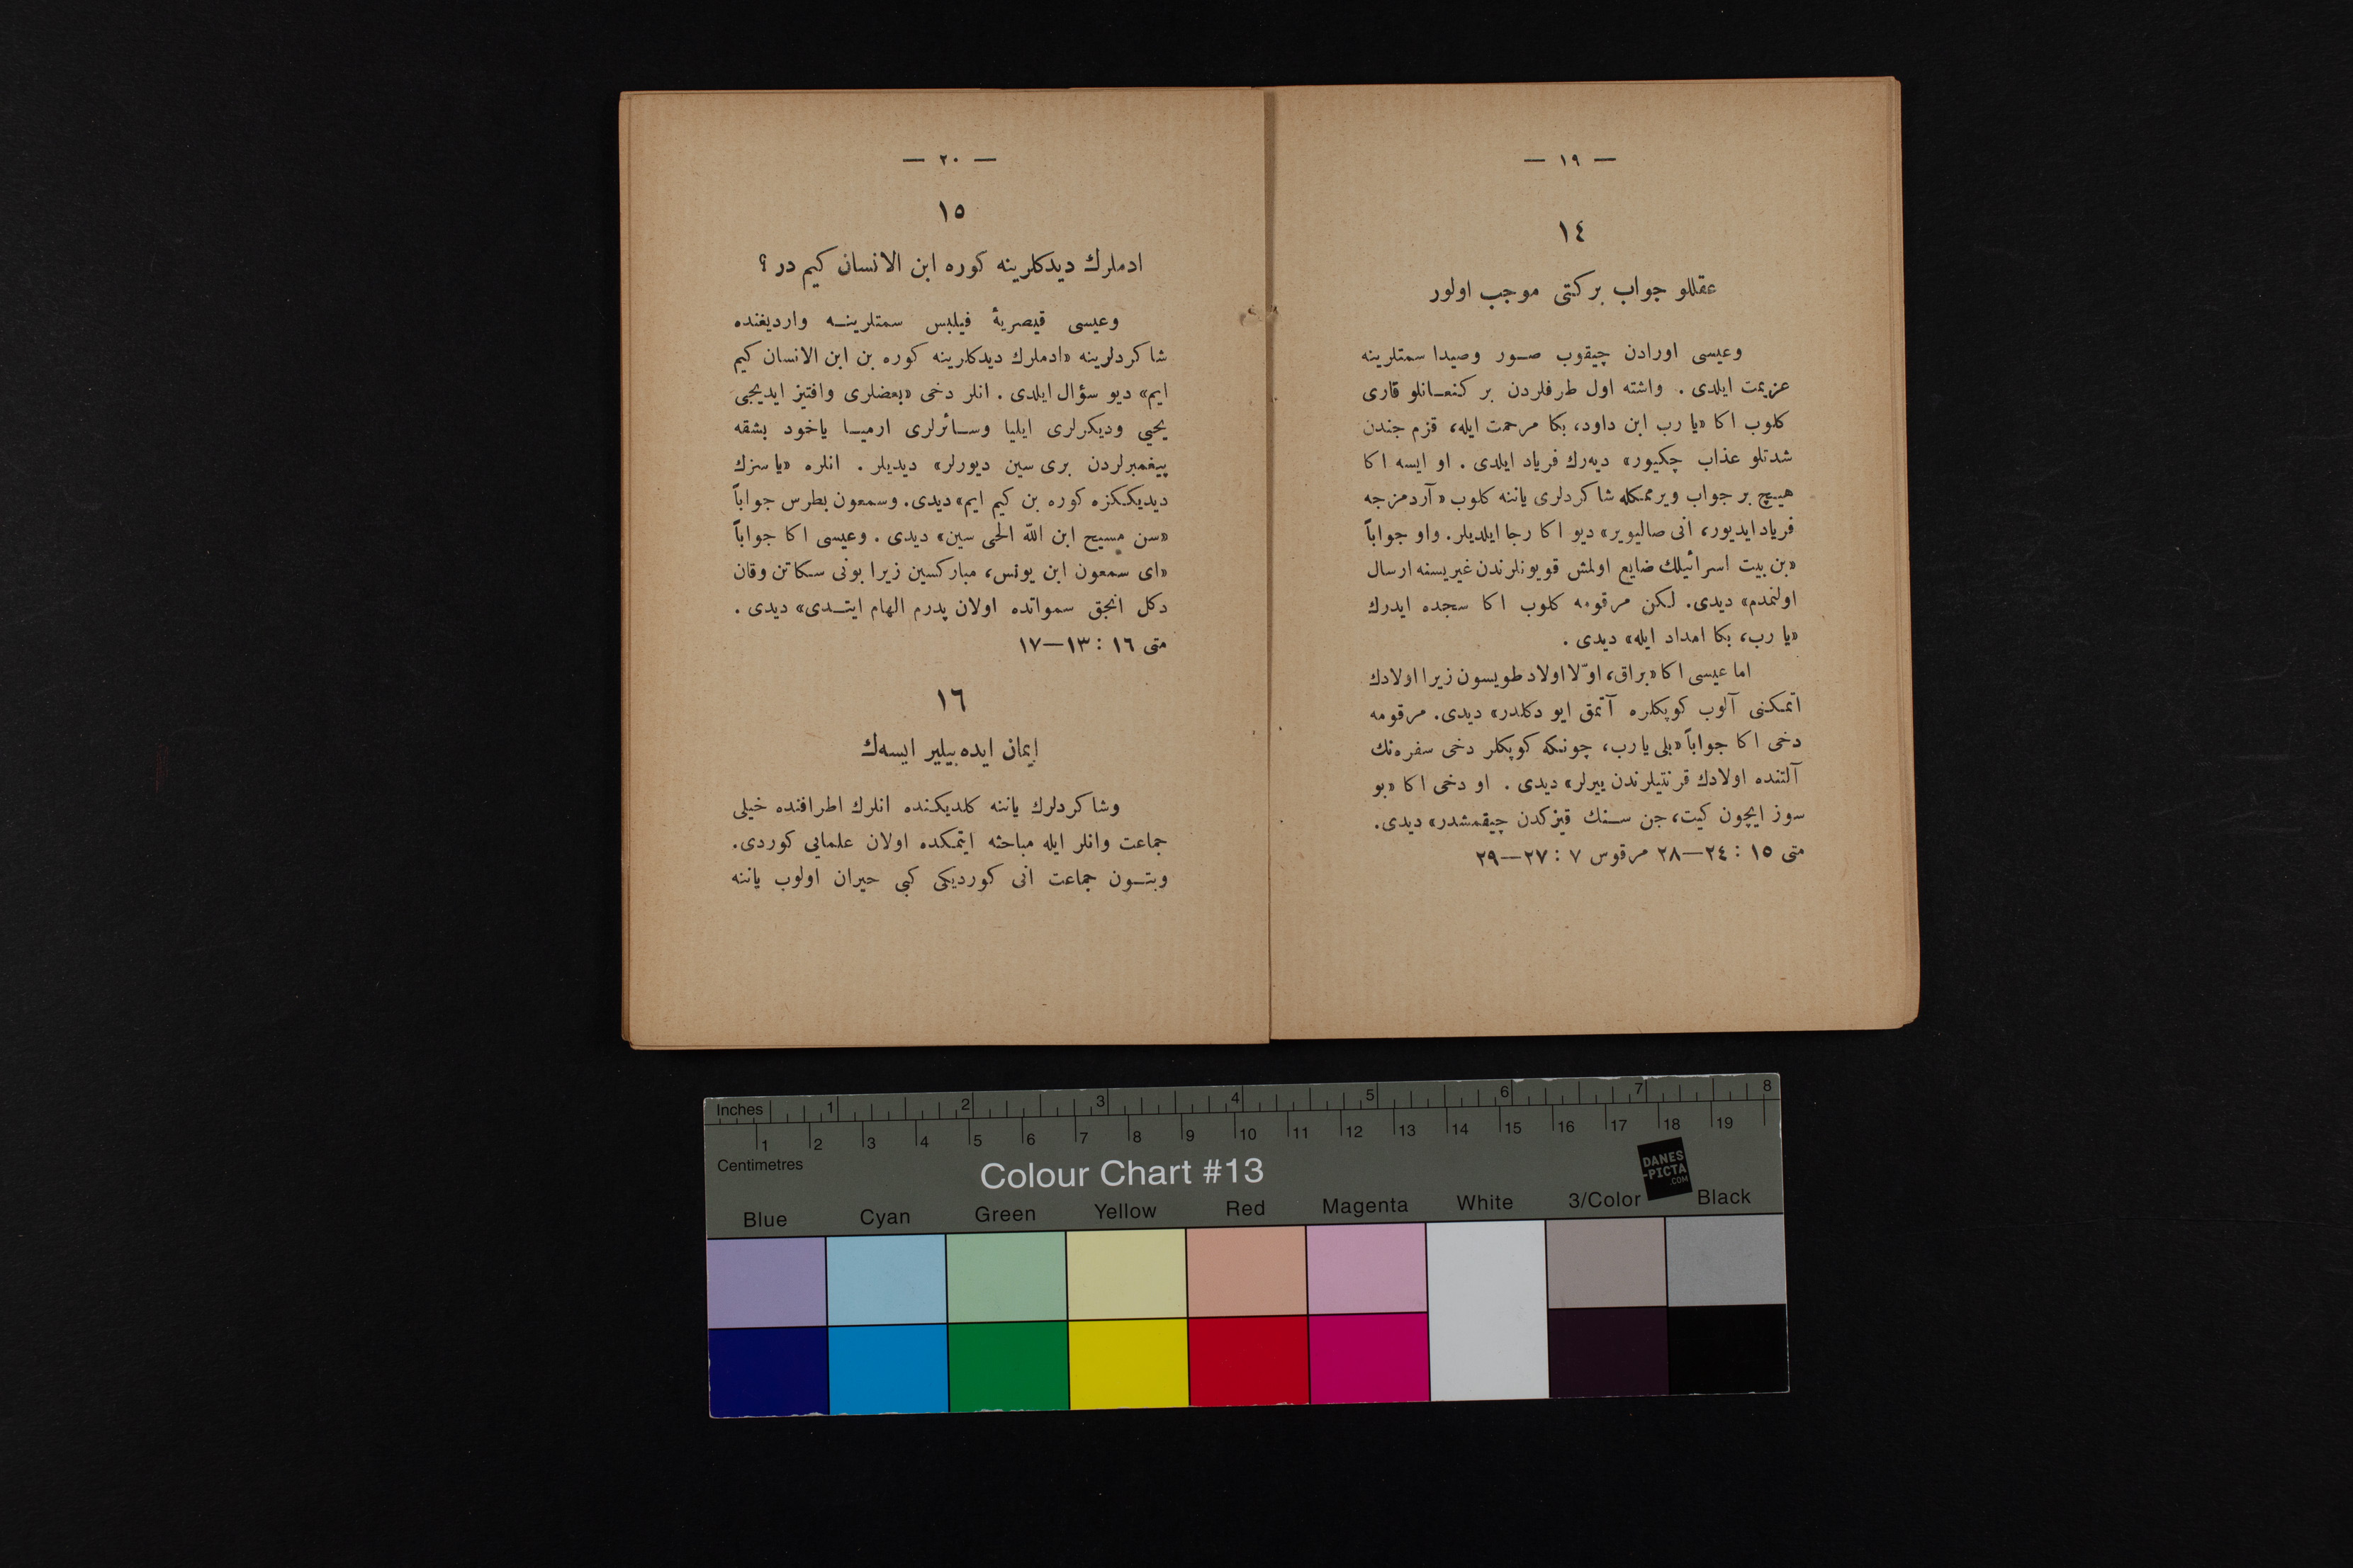 — ١٩ —
١٤
عقللو جواب بركتی موجب اولور
وعیسی اورادن چیقوب صور وصیدا سمتلرینه
عزیمت ایلدی . واشته اول طرفلردن بر كنعانلو قاری
كلوب اكا «یا رب ابن داود، بكا مرحمت ایله، قزم جندن
شدتلو عذاب چكیور» دیه‌رك فریاد ایلدی . او ایسه اكا
هیچ بر جواب ویرممكله شاكردلری یاننه كلوب «آردمزجه
فریاد ایدیور، انی صالیویر» دیو اكا رجا ایلدیلر. واو جواباً
«بن بیت اسرائیلك ضایع اولمش قویونلرندن غیریسنه ارسال
اولنمدم» دیدی. لكن مرقومه كلوب اكا سجده ایدرك
«یا رب، بكا امداد ایله» دیدی .
اما عیسی اكا «براق، اوّلا اولاد طویسون زیرا اولادك
اتمكنی آلوب كوپكلره آتمق ایو دكلدر» دیدی. مرقومه
دخی اكا جواباً «بلی یا رب، چونكه كوپكلر دخی سفره‌نك
آلتنده اولادك قرنتیلرندن ییرلر» دیدی . او دخی اكا «بو
سوز ایچون كیت، جن سنك قیزكدن چیقمشدر» دیدی.
متی ١٥ : ٢٤—٢٨ مرقوس ٧ : ٢٧—٢٩
— ٢٠ —
١٥
ادملرك دیدكلرینه كوره ابن الانسان كیم در ؟
وعیسی قیصریۀ فیلبس سمتلرینه واردیغنده
شاكردلرینه «ادملرك دیدكلرینه كوره بن ابن الانسان كیم
ایم» دیو سؤال ایلدی . انلر دخی «بعضلری وافتیز ایدیجی
یحیی ودیكرلری ایلیا وسائرلری ارمیا یاخود بشقه
پیغمبرلردن بری سین دیورلر» دیدیلر . انلره «یا سزك
دیدیككزه كوره بن كیم ایم» دیدی. وسمعون بطرس جواباً
«سن مسیح ابن اللّه الحی سین» دیدی . وعیسی اكا جواباً
«ای سمعون ابن یونس، مباركسین زیرا بونی سكا تن وقان
دكل انجق سمواتده اولان پدرم الهام ایتدی» دیدی .
متی ١٦ : ١٣—١٧
١٦
ایمان ایده بیلیر ایسه‌ك
وشاكردلرك یاننه كلدیكنده انلرك اطرافنده خیلی
جماعت وانلر ایله مباحثه ایتمكده اولان علمایی كوردی.
وبتون جماعت انی كوردیكی كبی حیران اولوب یاننه
Inches 1 2 3 4 5 6 7 8
1 2 3 4 5 6 7 8 9 10 11 12 13 14 15 16 17 18 19
Centimetres
Colour Chart #13
DANES
-PICTA
.COM
Blue Cyan Green Yellow Red Magenta White 3/Color Black